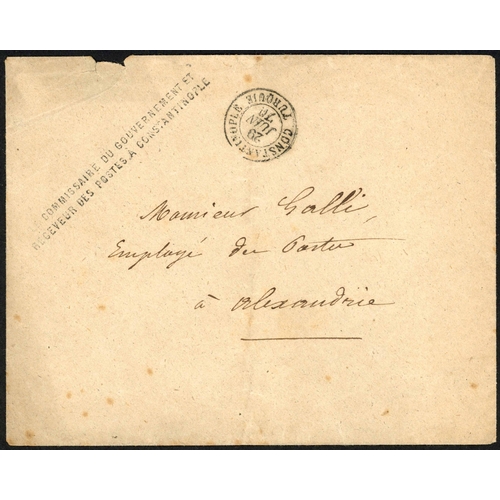 COMMISSAIRE DU GOUVERNEMENT ET
RECEVEUR DES POSTES À CONSTANTINOPLE
CONSTANTINOPLE TURQUIE
29
JUIN
70
Monsieur Galli,
Employé des Postes
à Alexandrie